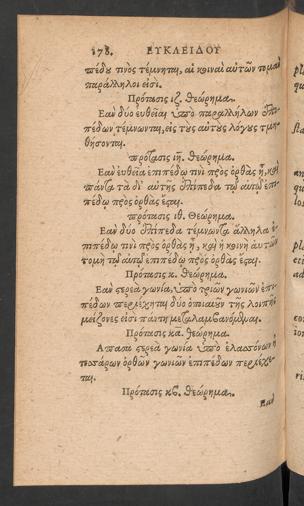 178. ΕΥΚΛΕΙΔΟΥ
πέδου τινὸς τέμνηται, αἱ κοιναὶ αὐτῶν τομαὶ
παράλληλοι εἰσί.
Πρότασις ιζ. θεώρημα.
Εὰν δύο εὐθεῖαι ὑπὸ παραλλήλων ἐπι-
πέδων τέμνωνται, εἰς τοὺς αὐτοὺς λόγους τμη-
θήσονται.
πρότασις ιη. θεώρημα.
Εὰν εὐθεῖα ἐπιπέδῳ τινὶ πρὸς ὀρθὰς ᾖ, καὶ
πάντα τὰ δι' αὐτῆς ἐπίπεδα τῷ αὐτῷ ἐπι-
πέδῳ πρὸς ὀρθὰς ἔσται.
πρότασις ιθ. Θεώρημα.
Εὰν δύο ἐπίπεδα τέμνοντα ἄλληλα ἐ-
πιπέδῳ τινὶ πρὸς ὀρθὰς ᾖ, καὶ ἡ κοινὴ αὐτῶν
τομὴ τῷ αὐτῷ ἐπιπέδῳ πρὸς ὀρθὰς ἔσται.
Πρότασις κ. θεώρημα.
Εὰν στερεὰ γωνία, ὑπὸ τριῶν γωνιῶν ἐπι-
πέδων περιέχηται δύο ὁποιαιοῦν τῆς λοιπῆς
μείζονες εἰσὶ πάντη μεταλαμβανόμεναι.
Πρότασις κα. θεώρημα.
Απασα στερεὰ γωνία ὑπὸ ἐλασσόνων ἢ
τεσσάρων ὀρθῶν γωνιῶν ἐπιπέδων περιέχε-
ται.
Πρότασις κβ. θεώρημα.
Εὰν